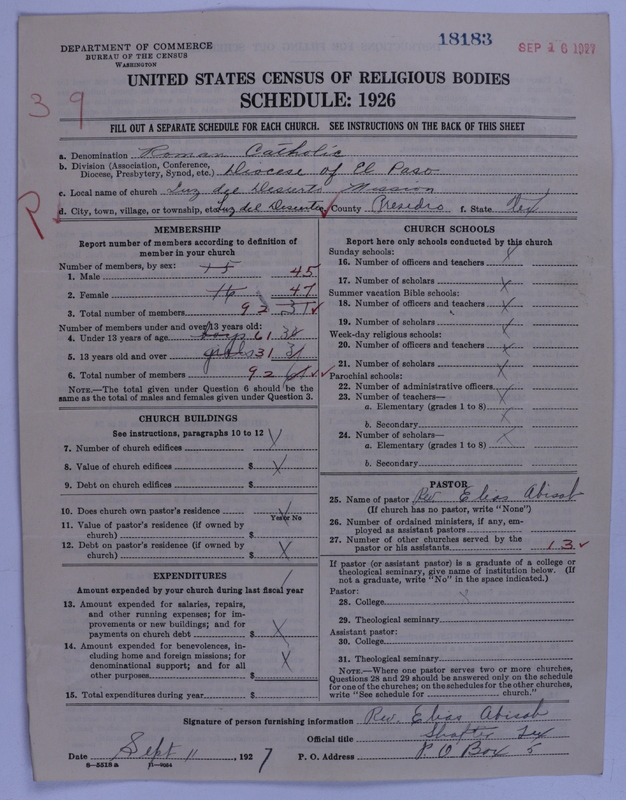 18183
SEP 16 1927
DEPARTMENT OF COMMERCE
BUREAU OF THE CENSUS
WASHINGTON
UNITED STATES CENSUS OF RELIGIOUS BODIES
SCHEDULE: 1926
39
FILL OUT A SEPARATE SCHEDULE FOR EACH CHURCH. SEE INSTRUCTIONS ON THE BACK OF THIS SHEET
a. Denomination Roman Catholic
b. Division (Association, Conference, Diocese, Presbytery, Synod, etc.) Diocese of El Paso
c. Local name of church Luz del Desierto Mission
d. City, town, village, or township, etc. Luz del Desierto County Presidio f. State Tex
MEMBERSHIP
Report number of members according to definition of member in your church
Number of members, by sex: 15
1. Male 45
2. Female 16 47
3. Total number of members 92 31
Number of members under and over 13 years old:
4. Under 13 years of age boys 61 30
5. 13 years old and over girls 31 31
6. Total number of members 92 61
NOTE.—The total given under Question 6 should be the same as the total of males and females given under Question 3.
CHURCH BUILDINGS
See instructions, paragraphs 10 to 12
7. Number of church edifices
8. Value of church edifices $ X
9. Debt on church edifices $
10. Does church own pastor's residence
Yes or No
11. Value of pastor's residence (if owned by church) $
12. Debt on pastor's residence (if owned by church) $ X
EXPENDITURES
Amount expended by your church during last fiscal year
13. Amount expended for salaries, repairs, and other running expenses; for improvements or new buildings; and for payments on church debt $ X
14. Amount expended for benevolences, including home and foreign missions; for denominational support; and for all other purposes $ X
15. Total expenditures during year $
CHURCH SCHOOLS
Report here only schools conducted by this church
Sunday schools:
16. Number of officers and teachers X
17. Number of scholars X
Summer vacation Bible schools:
18. Number of officers and teachers X
19. Number of scholars X
Week-day religious schools:
20. Number of officers and teachers X
21. Number of scholars X
Parochial schools:
22. Number of administrative officers X
23. Number of teachers—
a. Elementary (grades 1 to 8)
b. Secondary X
24. Number of scholars—
a. Elementary (grades 1 to 8) X
b. Secondary
PASTOR
25. Name of pastor Rev Elias Abisab
(If church has no pastor, write "None")
26. Number of ordained ministers, if any, employed as assistant pastors
27. Number of other churches served by the pastor or his assistants 13
If pastor (or assistant pastor) is a graduate of a college or theological seminary, give name of institution below. (If not a graduate, write "No" in the space indicated.)
Pastor:
28. College X
29. Theological seminary
Assistant pastor:
30. College
31. Theological seminary
NOTE.—Where one pastor serves two or more churches, Questions 28 and 29 should be answered only on the schedule for one of the churches; on the schedules for the other churches, write "See schedule for church."
Signature of person furnishing information Rev. Elias Abisab
Official title Shafter Tex
Date Sept 11, 1927 P. O. Address P.O Box 5
8—5518a 11—9034